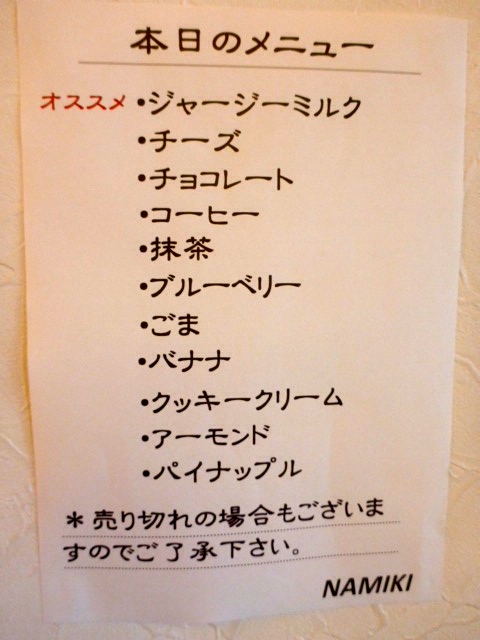 本日のメニュー
オススメ ・ジャージーミルク
・チーズ
・チョコレート
・コーヒー
・抹茶
・ブルーベリー
・ごま
・バナナ
・クッキークリーム
・アーモンド
・パイナップル
＊売り切れの場合もございま
すのでご了承下さい。
NAMIKI